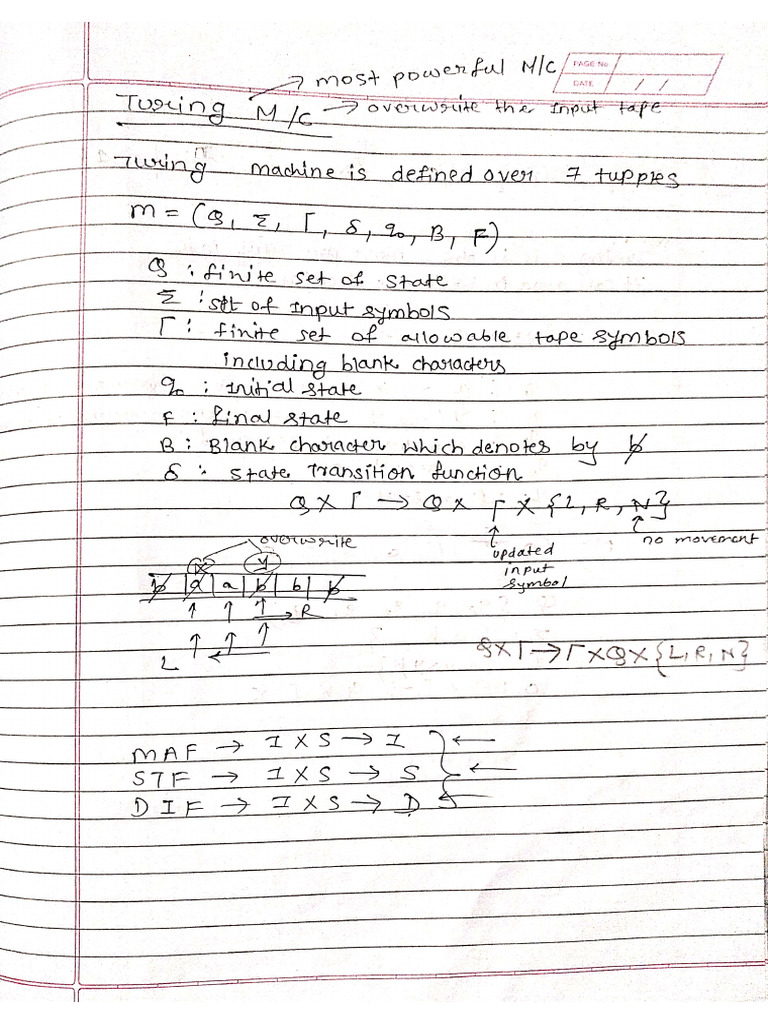 → most powerful M/C
PAGE No.
DATE / /
Turing M/C → overwrite the input tape
Turing machine is defined over 7 tupples
m = (Q, Σ, Γ, δ, q₀, B, F)
Q : finite set of state
Σ : set of input symbols
Γ : finite set of allowable tape symbols
including blank characters
q₀ : Initial state
F : final state
B : Blank character which denotes by b̸
δ : State Transition function
Q X Γ → Q X Γ X {L, R, N}
overwrite
↑ updated input symbol
↑ no movement
x y
b̸ | a | a | b | b | b̸
↑ ↑ ↑ → R
↑ ↑ ↑
L ←
Q X Γ → Γ X Q X {L, R, N}
MAF → I X S → I ←
STF → I X S → S ←
DIF → I X S → D ←